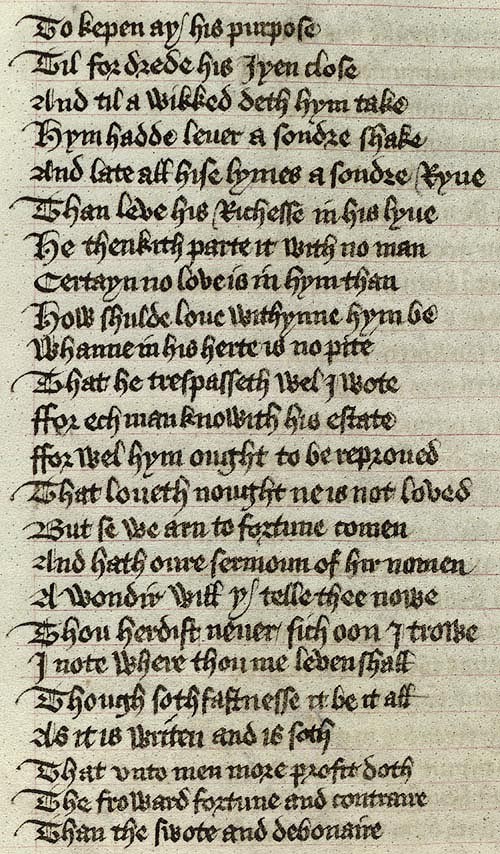 To kepen ay / his purpose
Til for drede his Iyen close
And til a wikked deth hym take
Hym hadde lever a sondre shake
And late all hise lymes a sondre Ryue
Than leve his Richesse in his lyue
He thenkith parte it with no man
Certayn no love is in hym than
How shulde loue withynne hym be
Whanne in his herte is no pite
That he trespasseth wel I wote
ffor ech man knowith his estate
ffor wel hym ought to be reproued
That loueth nought ne is not loved
But se we arn to fortune comen
And hath oure sermoun of hir nomen
A wondir will y / telle thee nowe
Thou herdist neuer / sich oon I trowe
I note where thou me leven shall
Though sothfastnesse it be it all
As it is writen and is soth
That vnto men more profit doth
The froward fortune and contraire
Than the swote and debonaire